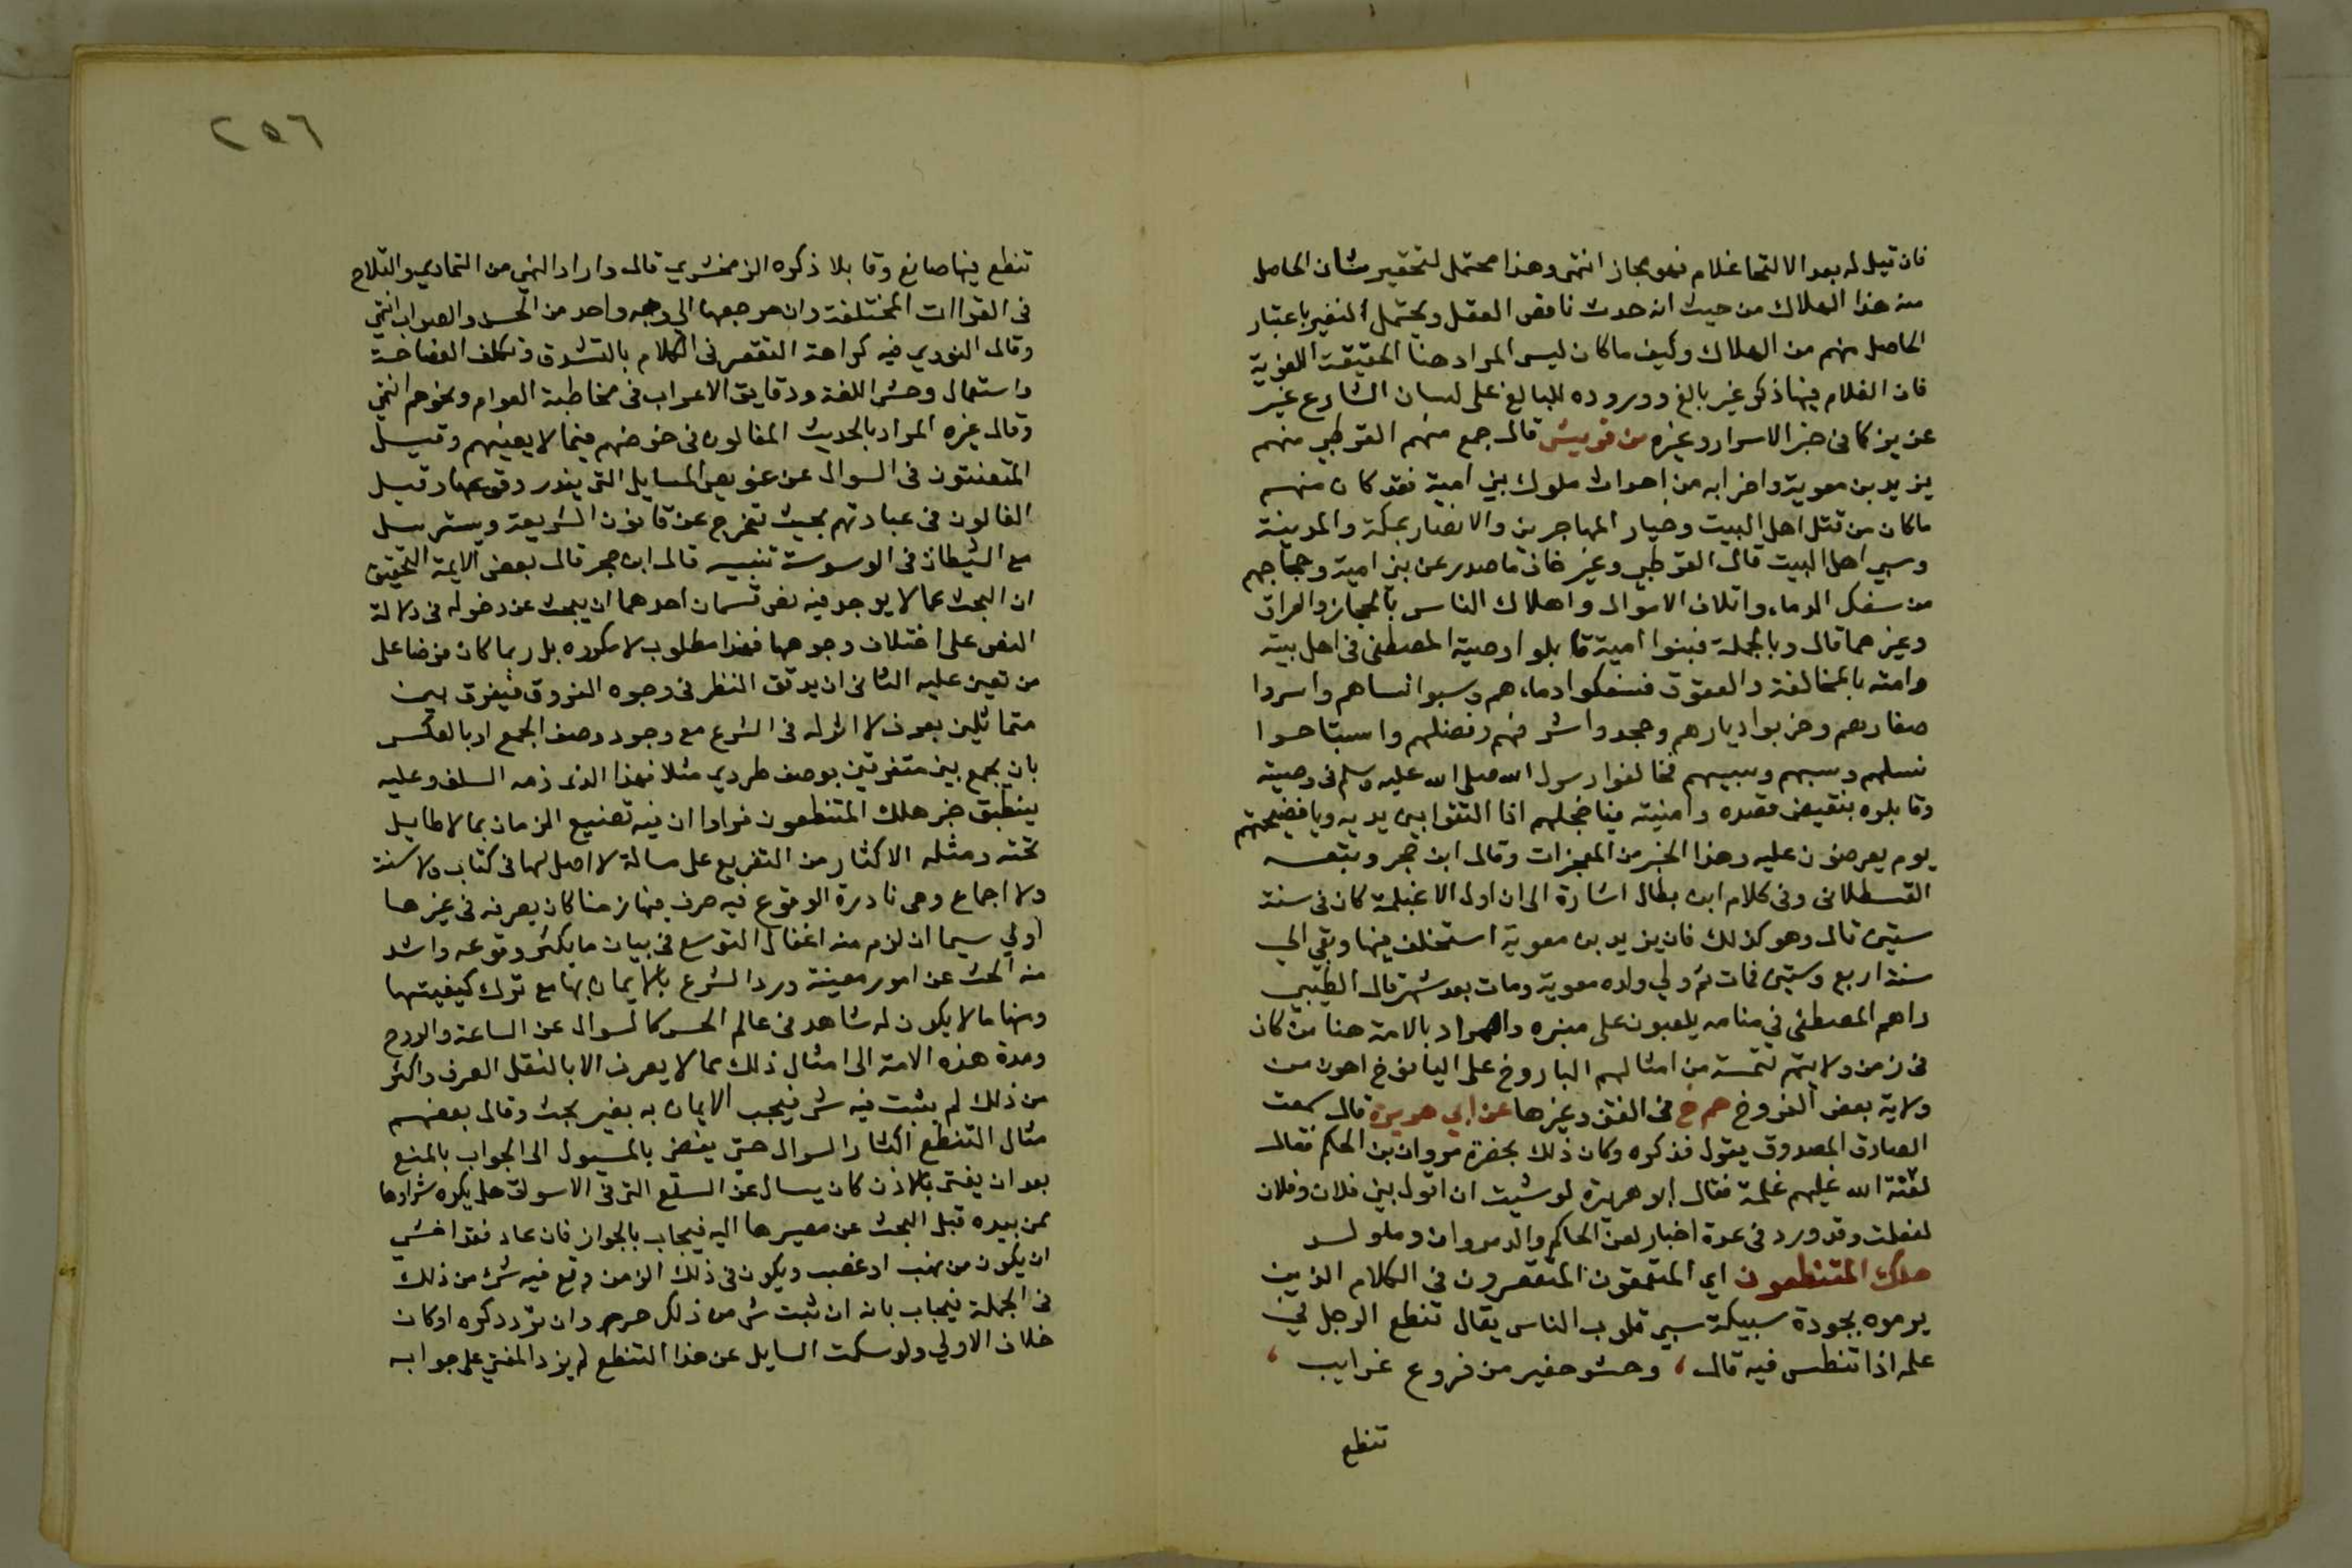 فان قيل له بعد الالتحا غلام فهو مجاز انتهى وهذا محتمل لتحقير شان الحاصل
منه هذا الهلاك من حيث انه حدث ناقص العقل ويحتمل التغير باعتبار
الحاصل منهم من الهلاك وكيف ماكان ليس المراد هنا الحقيقة اللغوية
فان الغلام فيها ذكر غير بالغ ووروده للبالغ على لسان الشارع غير
عزيز كما فى خبر الاسرا وغيره من قريش قال جمع منهم القرطبي منهم
يزيد بن معوية واضرابه من احداث ملوك بني امية فقد كان منهم
ماكان من قتل اهل البيت وخيار المهاجرين والانصار بمكة والمدينة
وسبي اهل البيت قال القرطبي وغير خاف ما صدر عن بنى امية وحجاجهم
من سفك الدماء واتلاف الاموال واهلاك الناس بالحجاز والعراق
وغيرهما قال وبالجملة فبنوا امية قابلوا وصية المصطفى فى اهل بيته
وامته بالمخالفة والعقوق فسفكوا دماءهم وسبوا نساهم واسروا
صغارهم وخربوا ديارهم وجحدوا شرفهم وفضلهم واستباحوا
نسلهم وسبهم وسبيهم فخالفوا رسول الله صلى الله عليه وسلم فى وصيته
وقابلوه بنقيض قصده وامنيته فيا خجلهم اذا التقوا بين يديه ويا فضيحتهم
يوم يعرضون عليه وهذا الخبر من المعجزات وقال ابن حجر وتبعه
القسطلانى وفى كلام ابن بطال اشارة الى ان اول الاغيلمة كان فى سنة
ستين قال وهو كذلك فان يزيد بن معوية استخلف فيها وبقي الي
سنة اربع وستين فمات ثم ولي ولده معوية ومات بعد شهر قال الطيبي
راهم المصطفى في منامه يلعبون على منبره والمراد بالامة هنا من كان
فى زمن ولايتهم تتمة من امثالهم الباروخ على اليافوخ اهون من
ولاية بعض الفروخ حم خ فى الفتن وغيرها عن ابي هريرة قال سمعت
الصادق المصدوق يقول فذكره وكان ذلك بحضرة مروان بن الحكم فقال
لعنة الله عليهم غلمة فقال ابو هريرة لو شيت ان اقول بني فلان وفلان
لفعلت وقد ورد فى عدة اخبار لعن الحاكم والد مروان وما ولد
هلك المتنطعون اي المتعمقون المتقعرون فى الكلام الذين
يرموه بجودة سبيكه سبي قلوب الناس يقال تنطع الرجل في
علمه اذا تنطس فيه قال، وحشو حفير من فروع غرايب،
تنطع
٢٥٦
تنطع فيها صانع وقابلا ذكره الزمخشري قال واراد النهي من التمادي والتلاح
فى القراات المختلفة وان مرجعها الي وجه واحد من الحسن والصواب انتهي
وقال النووي فيه كراهة التقعر فى الكلام بالتشدق وتكلف الفصاحة
واستعمال وحشي اللغة ودقايق الاعراب فى مخاطبة العوام ونحوهم انتهي
وقال غيره المراد بالحديث المغالون فى خوضهم فيما لا يعنيهم وقيل
المتعنتون فى السوال عن عويص المسايل التى يندر وقوعها وقيل
الغالون فى عبادتهم بحيث تخرج عن قانون الشريعة ويسترسل
مع الشيطان فى الوسوسة تنبيه قال ابن حجر قال بعض الايمة التحقيق
ان البحث عما لا يوجد فيه نص قسمان احدهما ان يبحث عن دخوله فى دلالة
النص على اختلاف وجوهها فهذا مطلوب لا مكروه بل ربما كان فرضا على
من تعين عليه الثانى ان يدقق النظر فى وجوه الفروق فيفرق بين
متماثلين بعرف لا اثر له فى الشرع مع وجود وصف الجمع او بالعكس
بان يجمع بين متفرقين بوصف طردي مثلا فهذا الذى ذمه السلف وعليه
ينطبق خبر هلك المتنطعون فراوا ان فيه تضييع الزمان بما لا طايل
تحته ومثله الاكثار من التفريع على مسالة لا اصل لها فى كتاب ولا سنة
ولا اجماع وهى نادرة الوقوع فيصرف فيها زمنا كان يصرفه فى غيرها
اولي سيما ان لزم منه اغفال التوسع فى بيان ما يكثر وقوعه واشد
منه البحث عن امور معينة ورد الشرع بالايمان بها مع ترك كيفيتها
ومنها ما لا يكون له شاهد فى عالم الحس كالسوال عن الساعة والروح
ومدة هذه الامة الى امثال ذلك مما لا يعرف الا بالنقل الصرف واكثر
من ذلك لم يثبت فيه شى فيجب الايمان به بغير بحث وقال بعضهم
مثال التنطع اكثار السوال حتى يفضى بالمسيول الى الجواب بالمنع
بعد ان يفتى بالاذن كان يسال عن السلع التى فى الاسواق هل يكره شراوها
ممن بيده قبل البحث عن مصيرها اليه فيجاب بالجواز فان عاد فقد اخشي
ان يكون من نهب او غصب ويكون فى ذلك الزمن وقع فيه شئ من ذلك
فى الجملة فيجاب بانه ان ثبت شى من ذلك حرم وان تردد كره او كان
خلاف الاولي ولو سكت السايل عن هذا التنطع لم يزد المفتي على جوابه